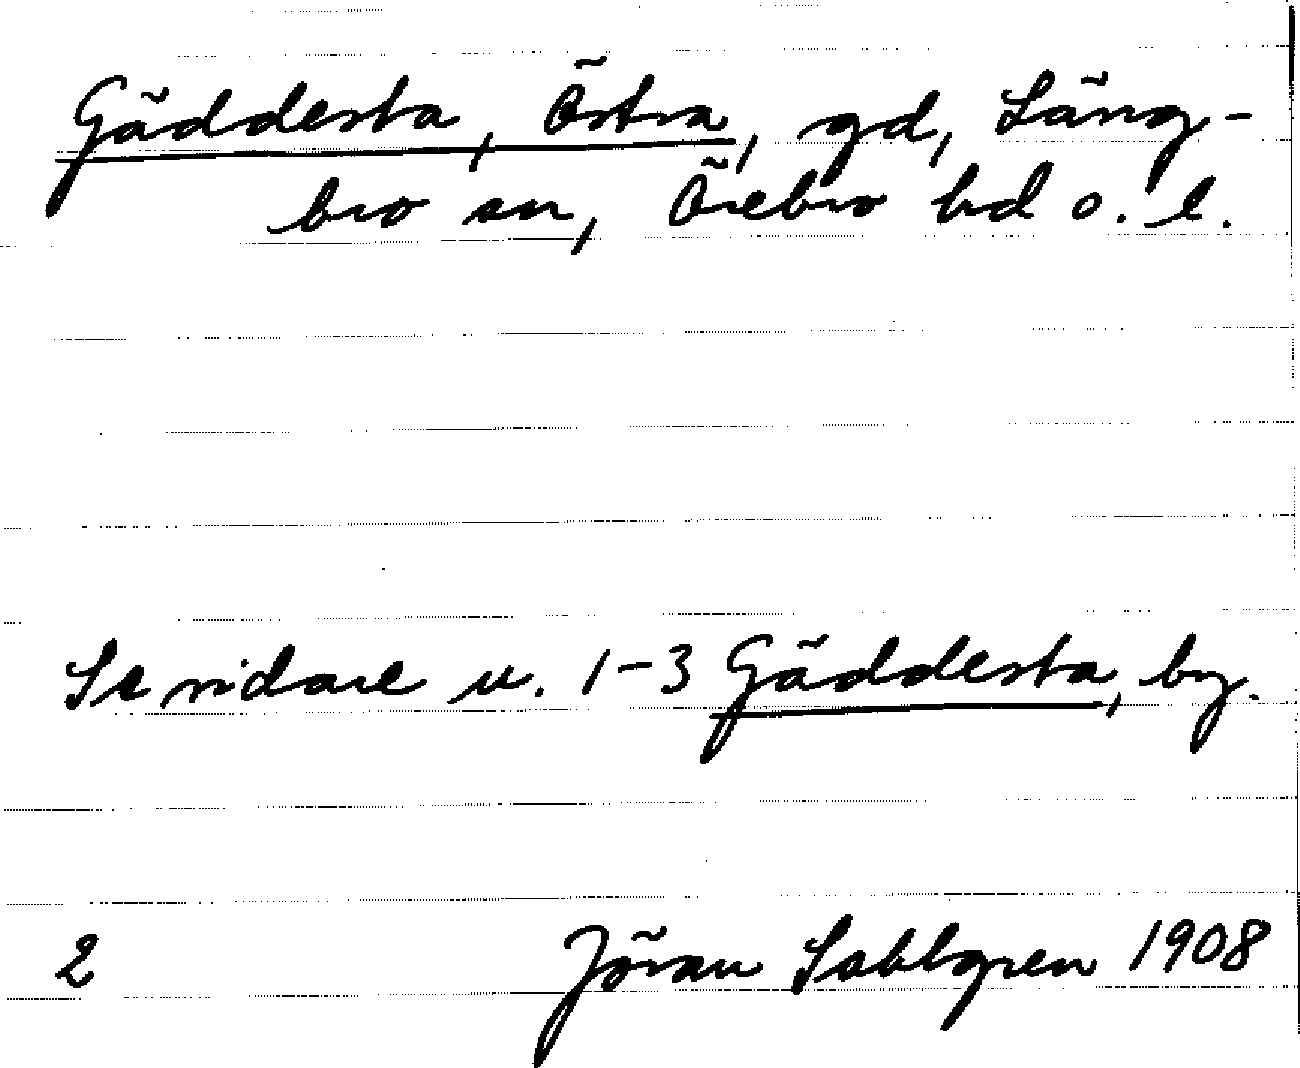 Gäddesta, Östra, gd, Läng-
bro sn, Örebro hd o. l.
Se vidare u. 1-3 Gäddesta, by.
2 Jöran Sahlgren 1908